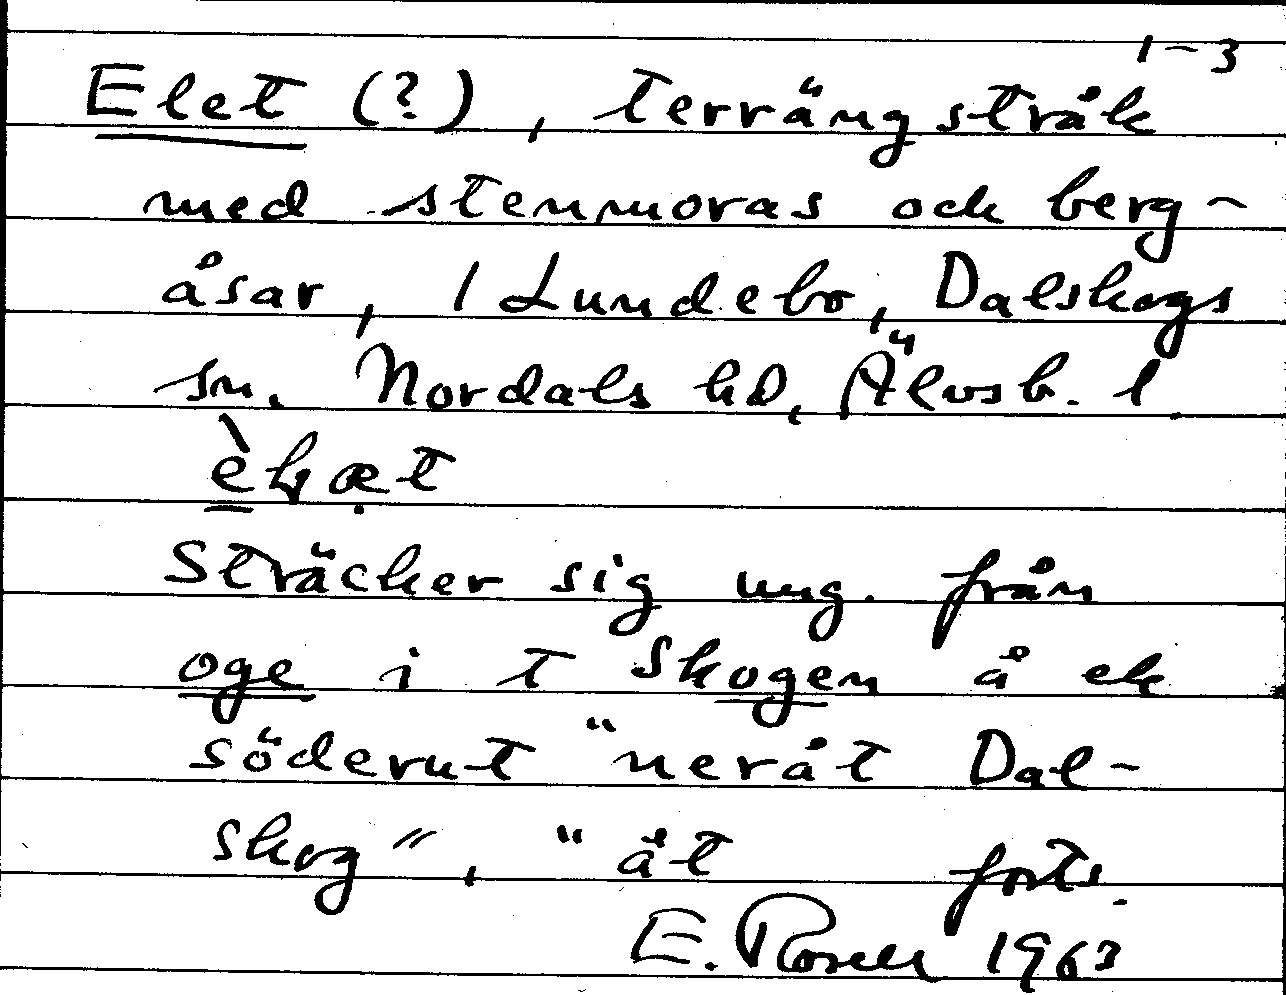 1-3
Elet (?), terrängstråk
med stenmoras och berg-
åsar, 1 Lundebo, Dalskogs
sn. Nordals hd, Älvsb. l.
Sträcker sig ung. från
oge i t skogen å ek
söderut "neråt Dal-
skog", "åt forts.
E. Rosell 1963